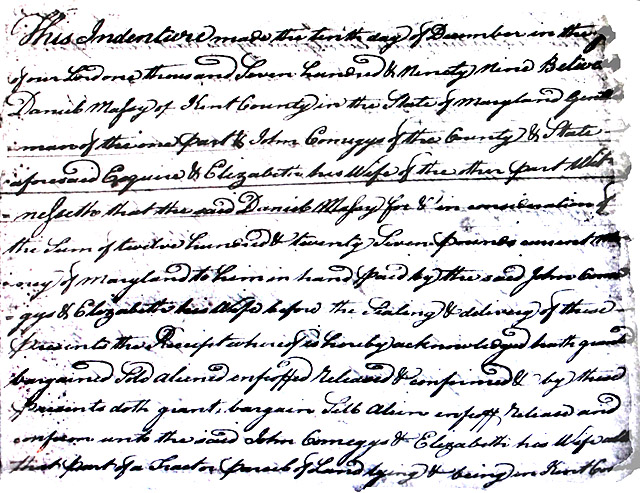 This Indenture made the tenth day of December in the
of our Lord one thousand Seven hundred & Ninety Nine Betwe
Daniel Massey of Kent County in the State of Maryland Gentl
-man of the one part & John Comegys of the County & State
aforesaid Esquire & Elizabeth his Wife of the other part Wit
-nesseth that the said Daniel Massey for & in consideration of
the Sum of twelve hundred & twenty Seven pounds current mo
-ney of Maryland to him in hand paid by the said John Come
-gys & Elizabeth his Wife before the Sealing & delivery of these
presents the Receipt whereof is hereby acknowledged hath
bargained Sold aliened enfeoffed released & confirmed & by these
presents doth grant, bargain Sell alien enfeoff, release and
confirm unto the said John Comegys & Elizabeth his Wife all
that part of a Tract or parcel of Land lying & being in Kent Cou